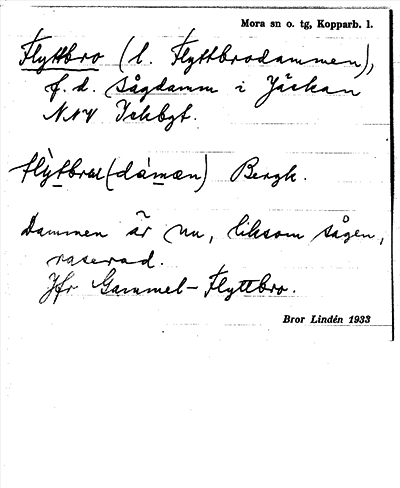 Mora sn o. tg, Kopparb. l.
Flyttbro (l. Flyttbrodammen),
f. d. sågdamm i Jäckan
NNV
flỳtbrω(dámæn) Bergk.
Dammen är nu, liksom sågen,
raserad.
Jfr Gammel-Flyttbro.
Bror Lindén 1933